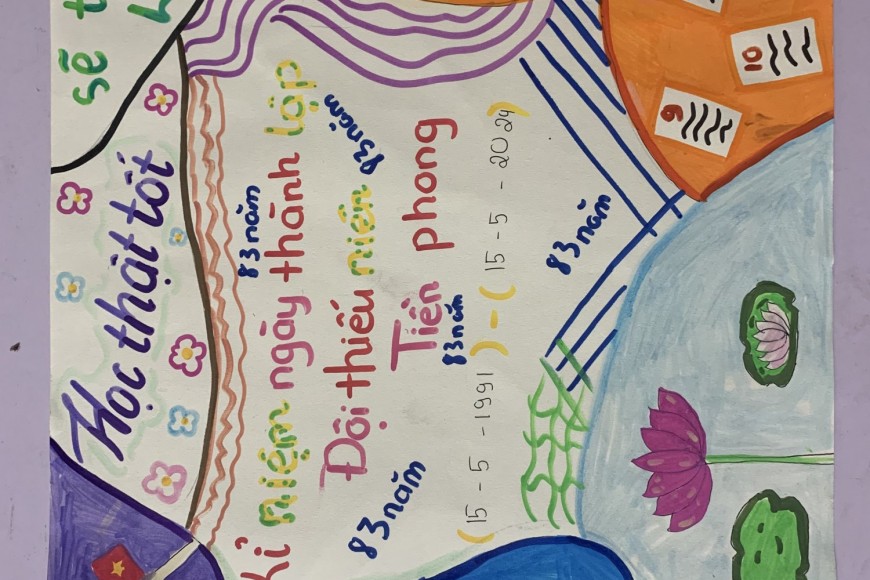 sẽ
Học thật tốt
83 năm
Kỉ niệm ngày thành lập
83 năm
Đội thiếu niên
83 năm
Tiền phong
83 năm
83 năm
(15 - 5 - 1991) - (15 - 5 - 2024)
83 năm
9
10